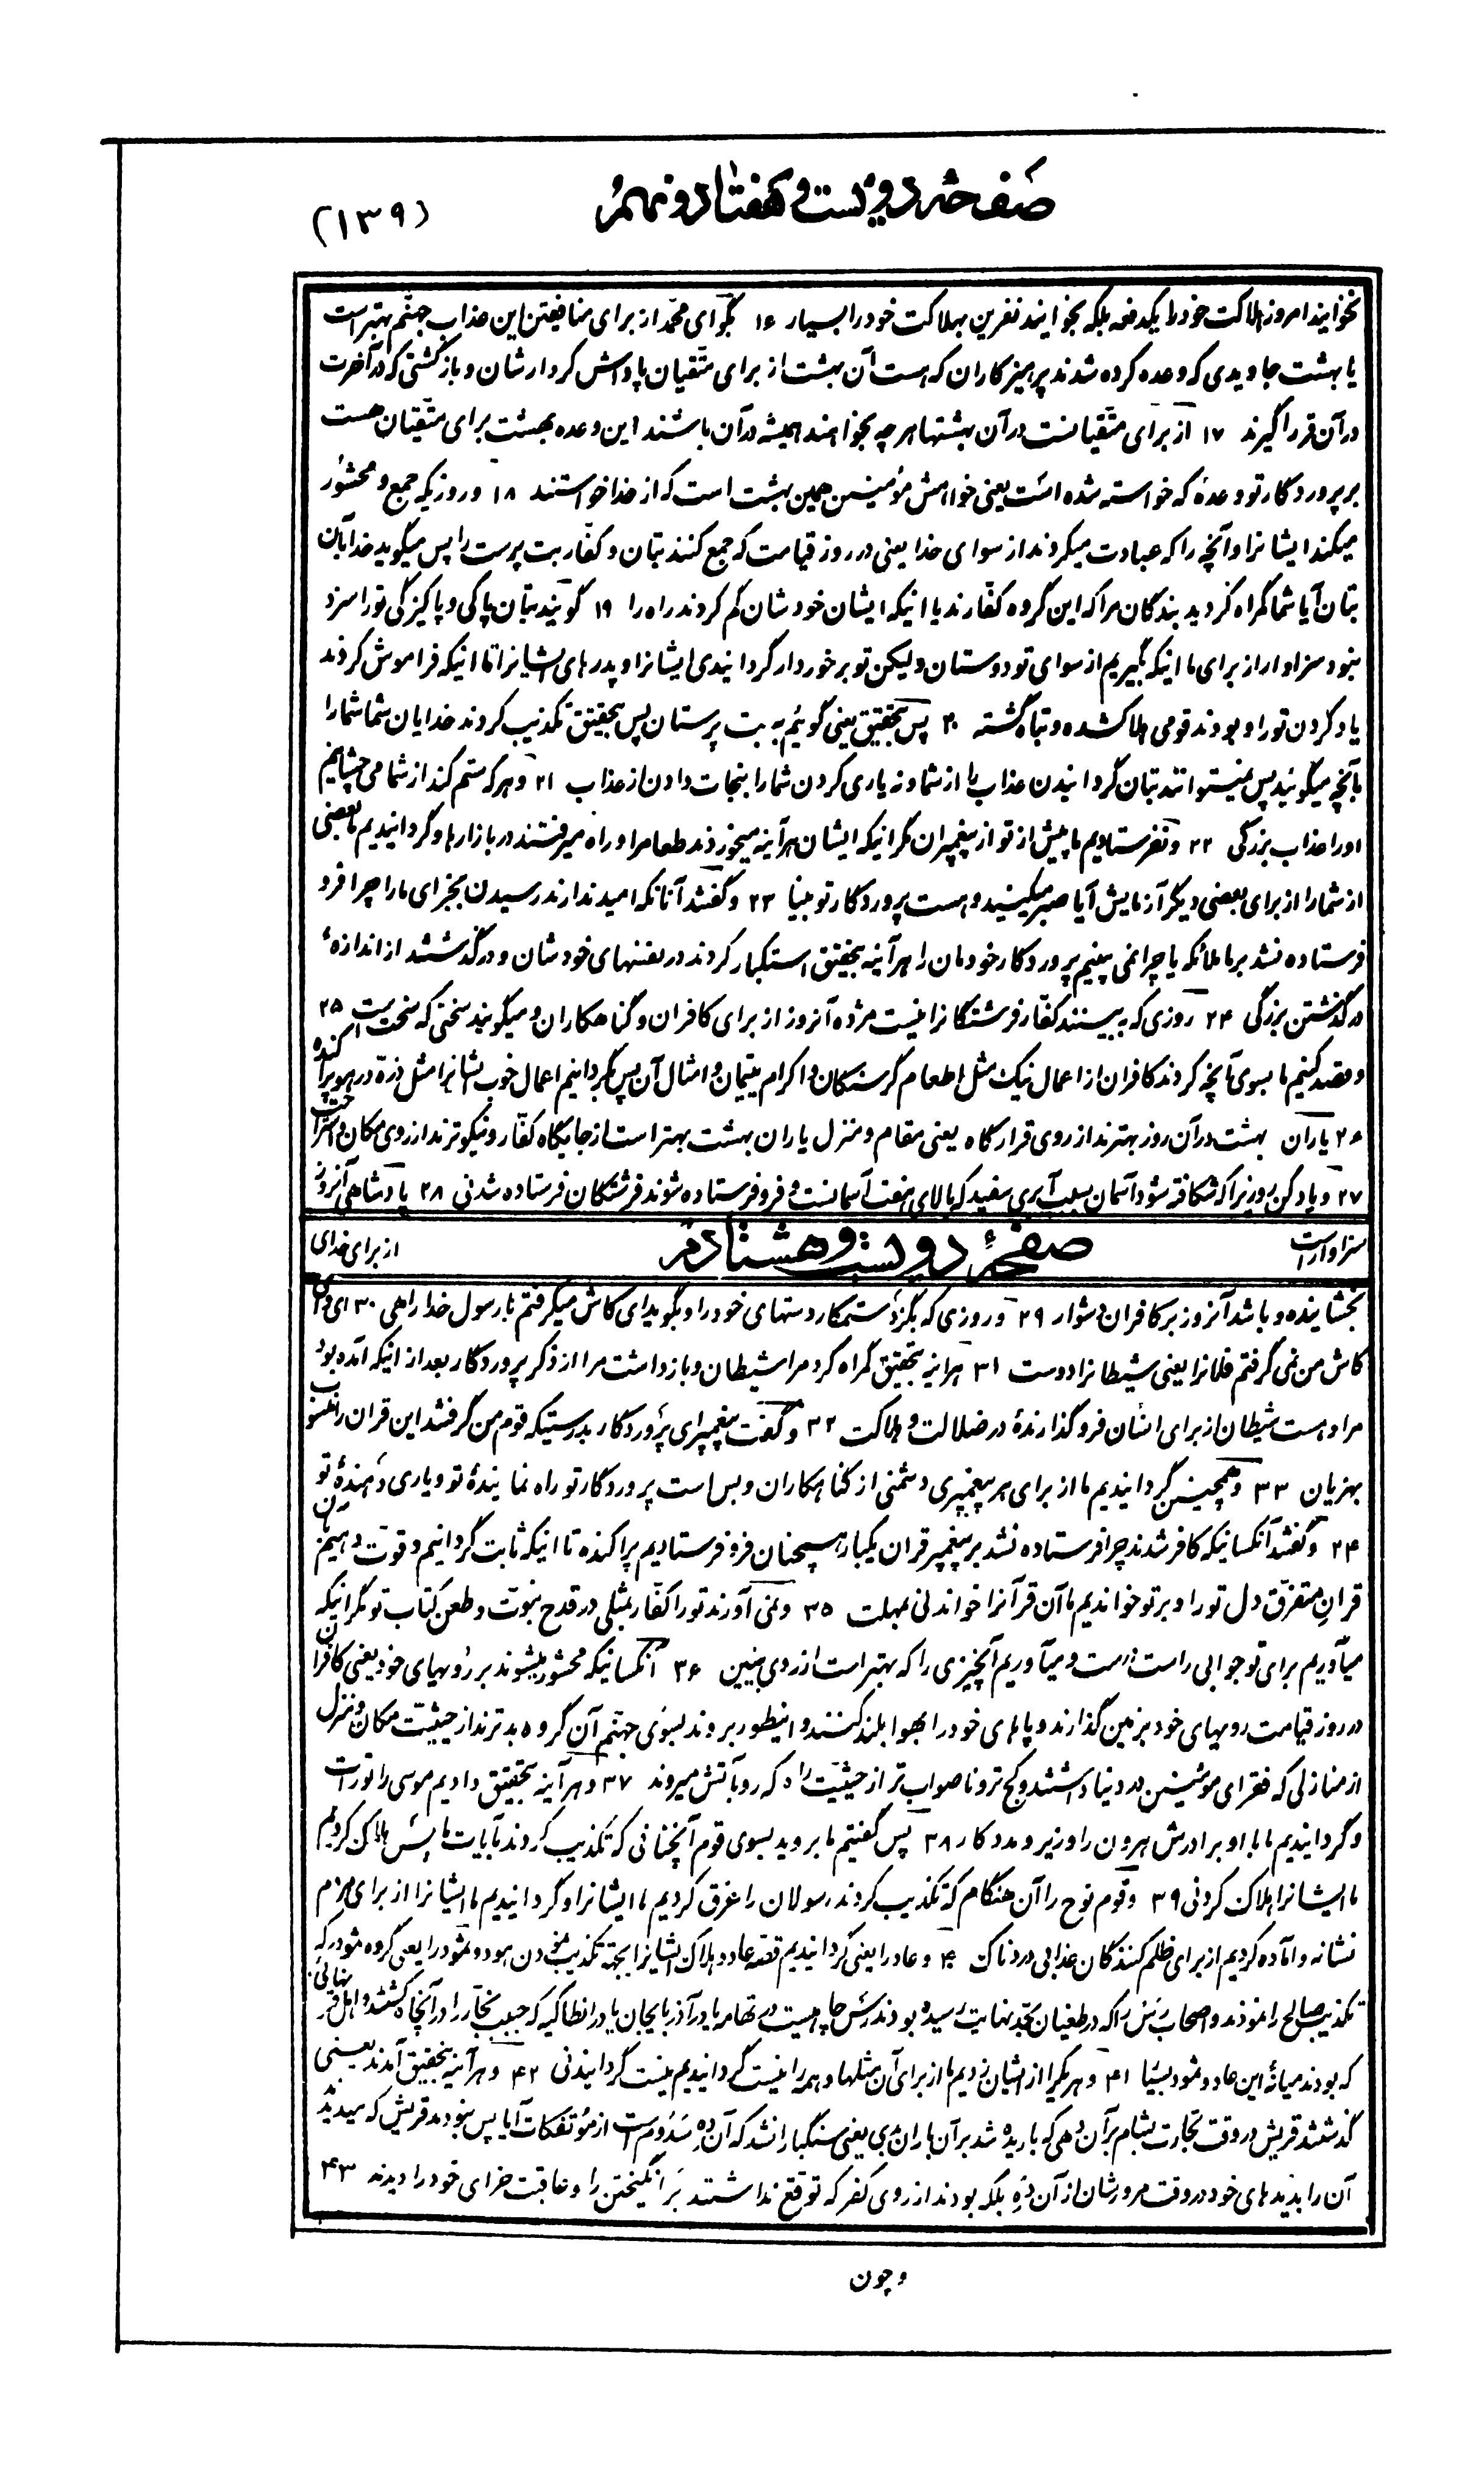 صفحه دویست و هفتاد و نهم
(۱۳۹)
نخوانید امروز هلاکت خود را یکدفعه بلکه بخوانید نفرین بهلاکت خود را بسیار ۱۶ بگو ای محمد از برای منافقین این عذاب جهنّم بهتر است
یا بهشت جاویدی که وعده کرده شدند پرهیزکاران که هست آن بهشت از برای متّقیان پاداش کردارشان و بازگشتی که در آخرت
در آن قرار گیرند ۱۷ از برای متّقیانست در آن بهشتها هر چه بخواهند همیشه در آن باشند این وعده بهشت برای متّقیان هست
بر پروردگار تو وعدهٔ که خواسته شده است یعنی خواهش مؤمنین همین بهشت است که از خدا خواستند ۱۸ و روزیکه جمع و محشور
میکند ایشانرا و آنچه را که عبادت میکردند از سوای خدا یعنی در روز قیامت که جمع کنند بتان و کفّار بت پرست را پس میگوید خدا بآن
بتان آیا شما گمراه کردید بندگان مرا که این گروه کفّارند یا اینکه ایشان خودشان گم کردند راه را ۱۹ گویند بتان پاکی و پاکیزگی تو را سزد
نبود سزاوار از برای ما اینکه بگیریم از سوای تو دوستان ولیکن تو برخوردار گردانیدی ایشانرا و پدرهای ایشانرا تا اینکه فراموش کردند
یاد کردن تو را و بودند قومی هلاکشده و تباه گشته ۲۰ پس بتحقیق یعنی گوئیم به بت پرستان پس بتحقیق تکذیب کردند خدایان شما شما را
بآنچه میگوئید پس نمیتوانند بتان گردانیدن عذاب را از شما و نه یاری کردن شما را بنجات دادن از عذاب ۲۱ و هر که ستم کند از شما می چشانیم
او را عذاب بزرگی ۲۲ و نفرستادیم ما پیش از تو از پیغمبران مگر اینکه ایشان هرآینه میخوردند طعامرا و راه میرفتند در بازارها و گردانیدیم ما بعضی
از شما را از برای بعضی دیگر آزمایش آیا صبر میکنید و هست پروردگار تو بینا ۲۳ و گفتند آنانکه امید ندارند رسیدن بجزای ما را چرا فرو
فرستاده نشد بر ما ملائکه یا چرا نمی بینیم پروردگار خودمان را هرآینه بتحقیق استکبار کردند در نفسهای خودشان و درگذشتند از اندازهٔ
درگذشتن بزرگی ۲۴ روزی که به بینند کفّار فرشتگانرا نیست مژده آنروز از برای کافران و گناهکاران و میگویند سختی که سخت است ۲۵
و قصد کنیم ما بسوی آنچه کردند کافران از اعمال نیک مثل اطعام گرسنگان و اکرام یتیمان و امثال آن پس گردانیم اعمال خوب ایشانرا مثل ذرّه در هوا پراکنده
۲۶ یاران بهشت در آن روز بهترند از روی قرارگاه یعنی مقام و منزل یاران بهشت بهتر است از جایگاه کفّار و نیکوترند از روی مکان و استراحت
۲۷ و یاد کن روزیرا که شکافته شود آسمان بسبب ابری سفید که بالای هفت آسمانست و فرو فرستاده شوند فرشتگان فرستاده شدنی ۲۸ پادشاهی آنروز
سزاوار است
صفحهٔ دویست و هشتادم
از برای خدای
بخشاینده و باشد آنروز بر کافران دشوار ۲۹ و روزی که بگزد ستمکار دستهای خود را و بگوید ای کاش میگرفتم با رسول خدا راهی ۳۰ ای وای
کاش من نمی گرفتم فلانرا یعنی شیطانرا دوست ۳۱ هرآینه بتحقیق گمراه کرد مرا شیطان و بازداشت مرا از ذکر پروردگار بعد از اینکه آمده بود
مرا و هست شیطان از برای انسان فروگذارندهٔ در ضلالت و هلاکت ۳۲ و گفت پیغمبر ای پروردگار بدرستیکه قوم من گرفتند این قران را منسوب
بهزیان ۳۳ و همچنین گردانیدیم ما از برای هر پیغمبری دشمنی از گناهکاران و بس است پروردگار تو راه نمایندهٔ تو و یاری دهندهٔ تو
۳۴ و گفتند آنکسانیکه کافر شدند چرا فرستاده نشد بر پیغمبر قران یکبار همچنان فرو فرستادیم پراکنده تا اینکه ثابت گردانیم و قوّت دهیم بآن
قرانِ متفرّق دل تو را و بر تو خواندیم ما آن قرآنرا خواندنی بمهلت ۳۵ و نمی آورند تو را کفّار بمثلی در قدح نبوّت و طعن کتاب تو مگر اینکه
میآوریم برای تو جوابی راست درست و میآوریم آنچیزی را که بهتر است از روی تبیین ۳۶ آنکسانیکه محشور میشوند بر رویهای خود یعنی کافران
در روز قیامت رویهای خود بزمین گذارند و پاهای خود را بهوا بلند کنند و اینطور بروند بسوی جهنّم آن گروه بدترند از حیثیّت مکان و منزل
از منازلی که فقرای مؤمنین در دنیا داشتند و کج تر و ناصواب تر از حیثیّت راه که رو بآتش میروند ۳۷ و هرآینه بتحقیق دادیم موسی را تورات
و گردانیدیم ما با او برادرش هرون را وزیر و مددکار ۳۸ پس گفتیم ما بروید بسوی قوم آنچنانی که تکذیب کردند بآیات ما پس هلاک کردیم
ما ایشانرا هلاک کردنی ۳۹ و قوم نوح را آن هنگام که تکذیب کردند رسولان را غرق کردیم ما ایشانرا و گردانیدیم ما ایشانرا از برای مردم
نشانه و آماده کردیم از برای ظلم کنندگان عذابی دردناک ۴۰ و عاد را یعنی گردانیدیم قصّه عاد و هلاک ایشانرا بجهة تکذیب نمودن هود و ثمود را یعنی گروه ثمود را که
تکذیب صالح را نمودند و اصحاب رَسّ را که در طغیان بحّد نهایت رسیده بودند رسّ چاهیست در تهامه یا در آذربایجان یا در انطاکیه که حبیب نجّار را در آنجا کشتند و اهل قرنهائی
که بودند میانهٔ این عاد و ثمود بسیا ۴۱ و هر یکیرا از ایشان زدیم ما از برای آن مثلها و همه را نیست گردانیدیم نیست گردانیدنی ۴۲ و هرآینه بتحقیق آمدند یعنی
گذشتند قریش در وقت تجارت بشام بر آن دهی که باریده شد بر آن باران بدی یعنی سنگباران شد که آن دِه سَدوم است از مؤتفکات آیا پس نبودند قریش که میدیدند
آن را بدیدهای خود در وقت مرورشان از آن دِه بلکه بودند از روی کفر که توقّع نداشتند بَرانگیختن را و عاقبت جزای خود را دیدند ۴۳
و چون